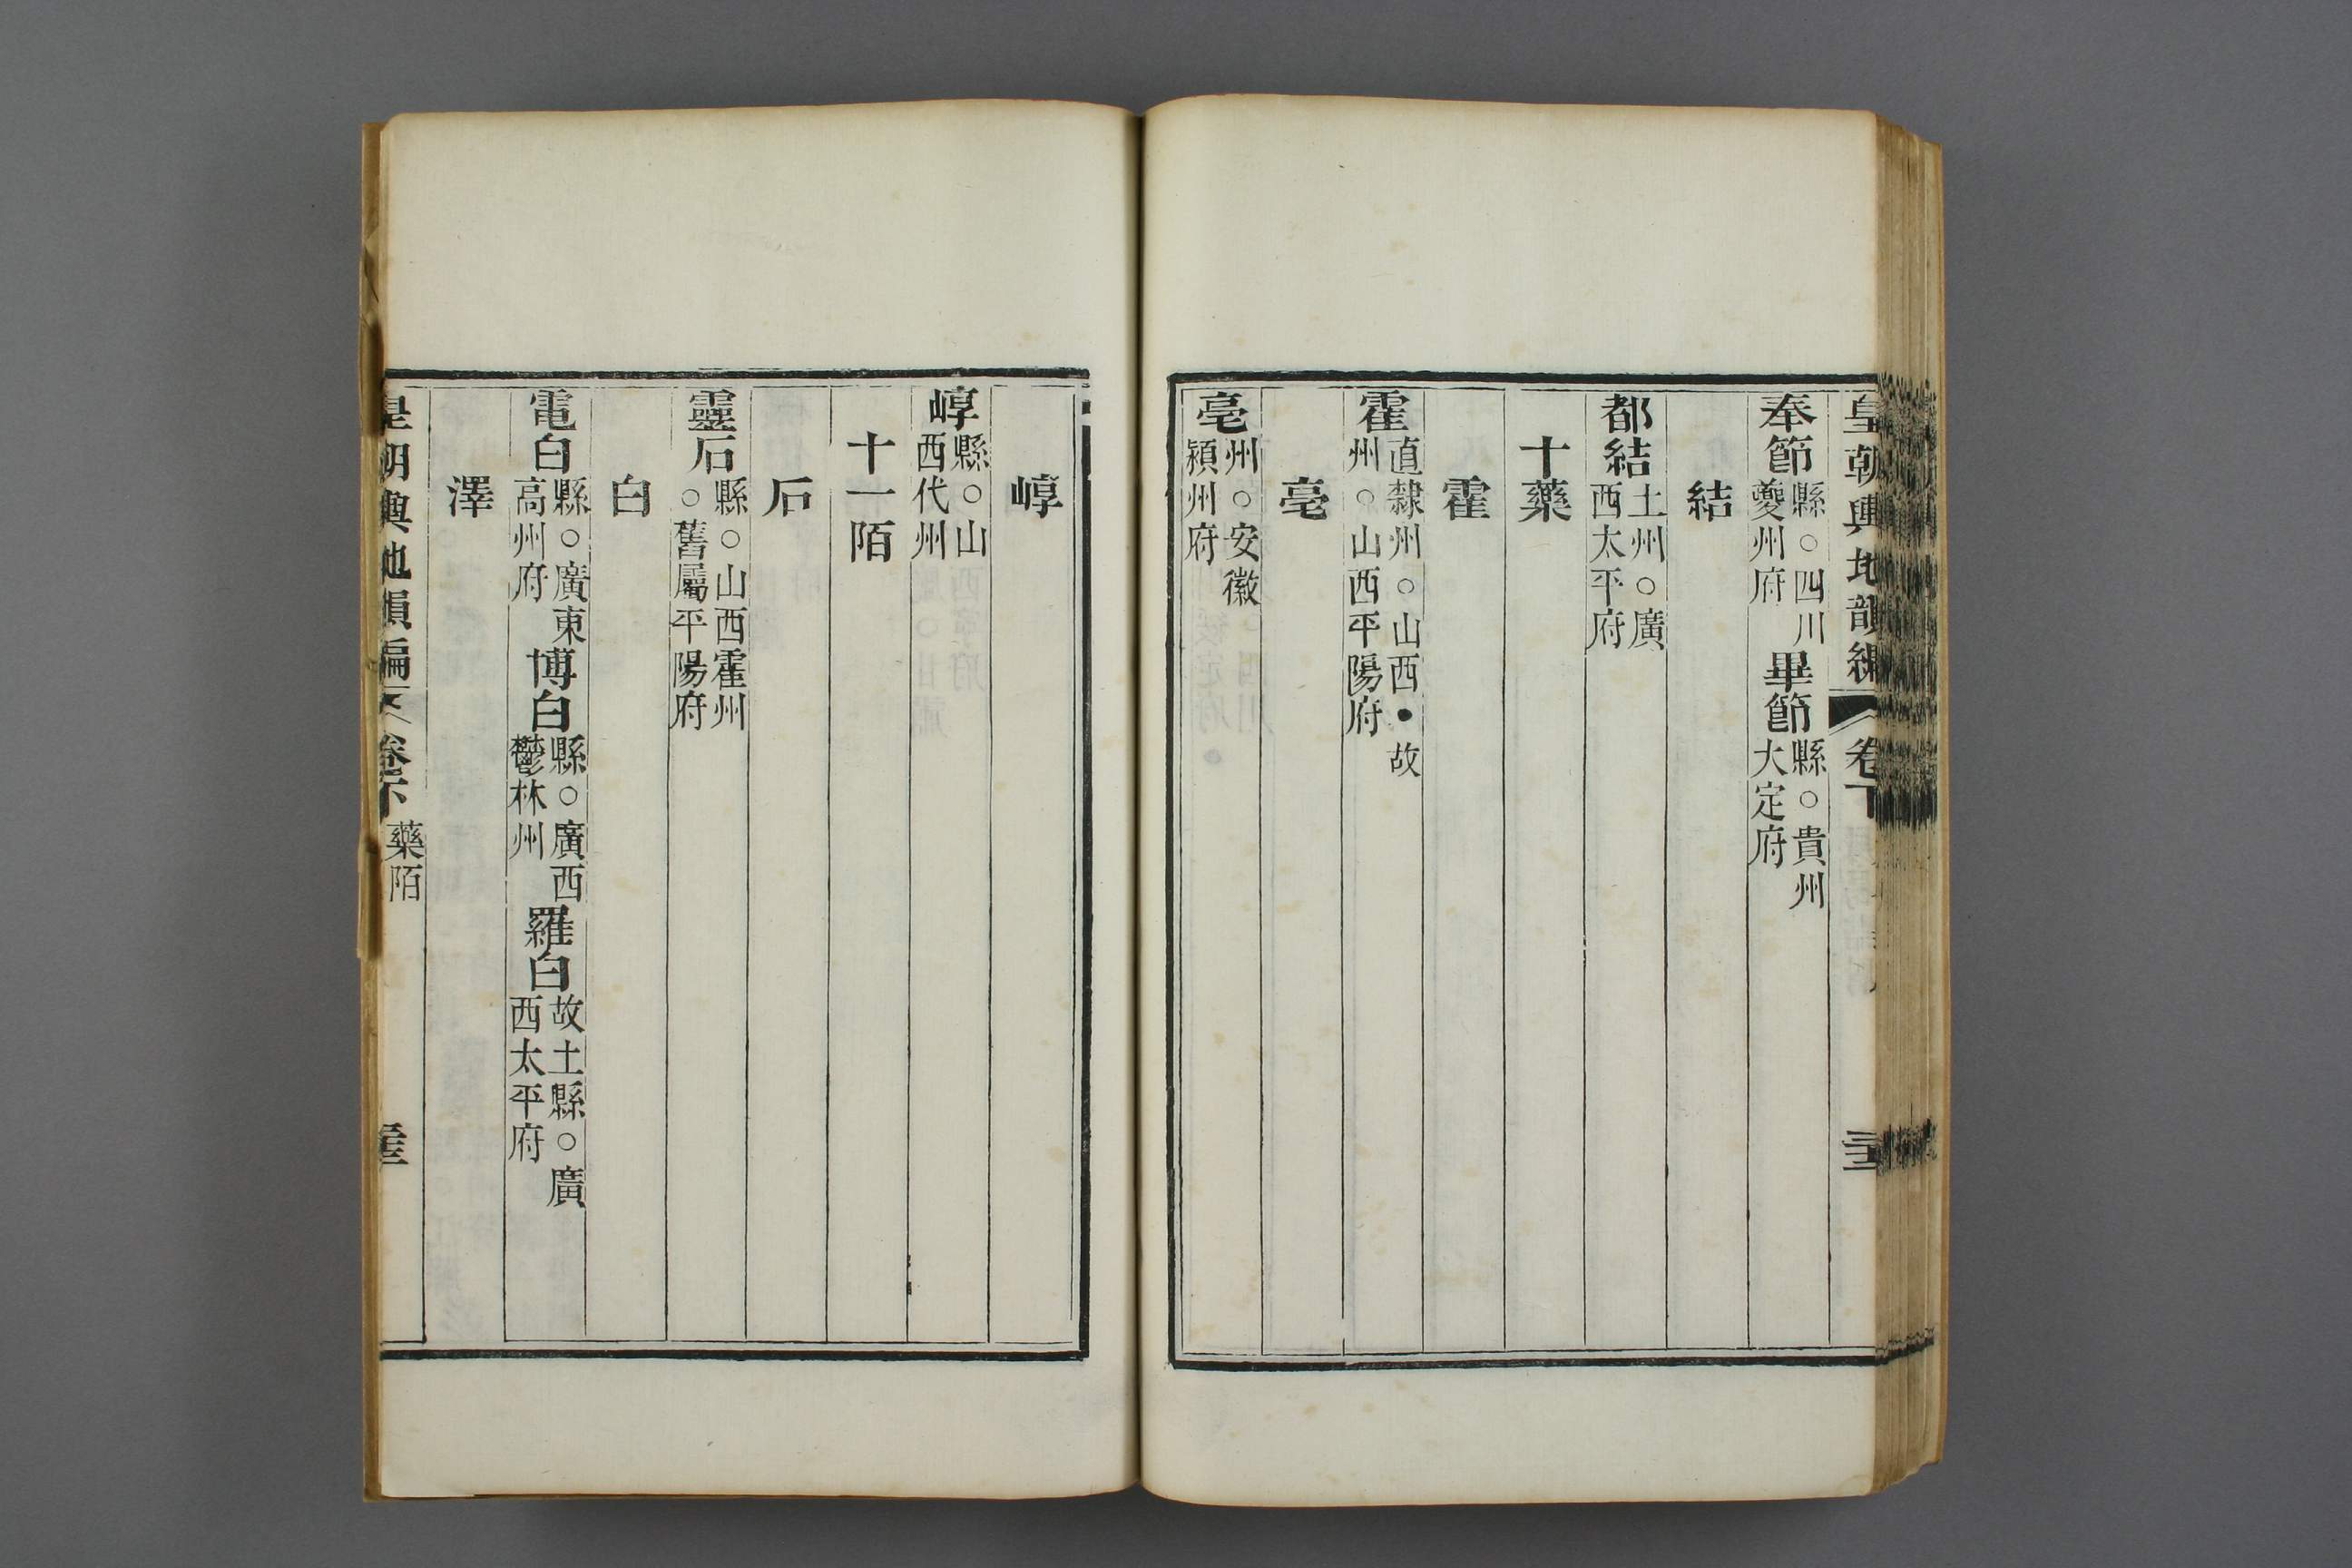 皇朝輿地韻編 卷下
奉節縣○四川夔州府 畢節縣○貴州大定府
結
都結土州○廣西太平府
十藥
霍
霍直隸州○山西●故州○山西平陽府
亳
亳州○安徽潁州府
崞
崞縣○山西代州
十一陌
石
靈石縣○山西霍州○舊屬平陽府
白
電白縣○廣東高州府 博白縣○廣西鬱林州 羅白故土縣○廣西太平府
澤
皇朝輿地韻編 卷下 藥陌